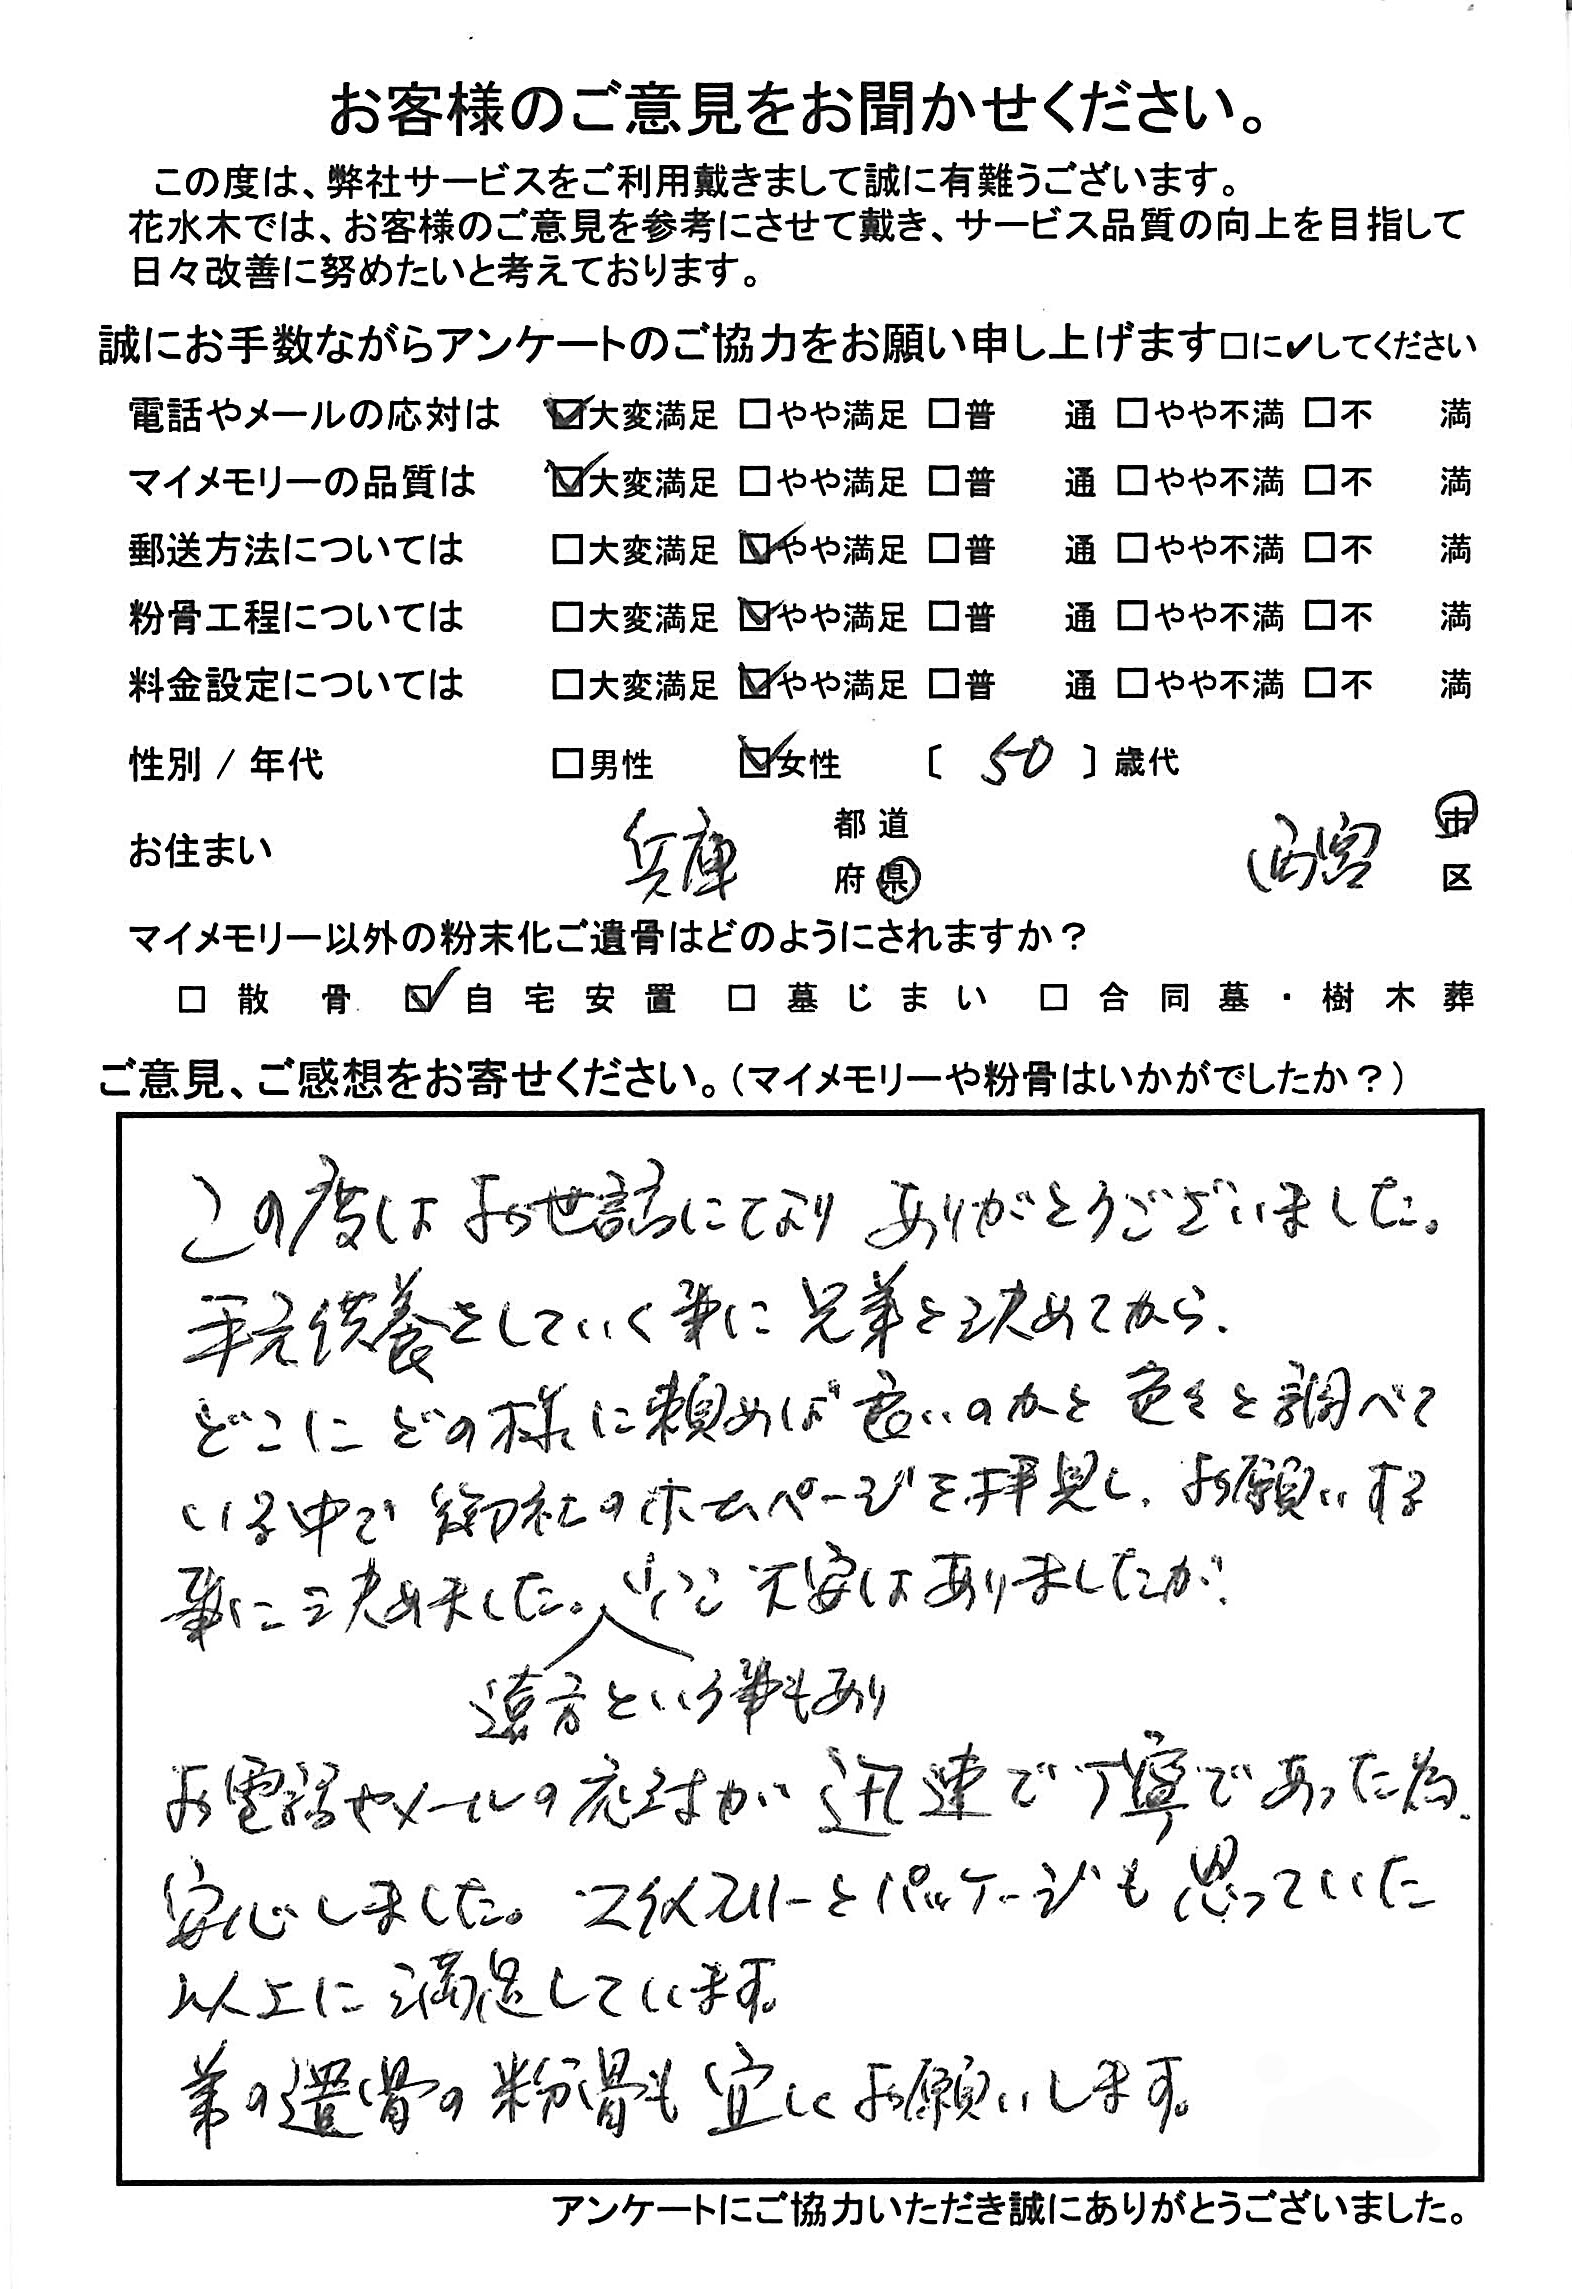 お客様のご意見をお聞かせください。
この度は、弊社サービスをご利用戴きまして誠に有難うございます。
花水木では、お客様のご意見を参考にさせて戴き、サービス品質の向上を目指して
日々改善に努めたいと考えております。
誠にお手数ながらアンケートのご協力をお願い申し上げます□に✔してください
電話やメールの応対は ☑大変満足 □やや満足 □普 通 □やや不満 □不 満
マイメモリーの品質は ☑大変満足 □やや満足 □普 通 □やや不満 □不 満
郵送方法については □大変満足 ☑やや満足 □普 通 □やや不満 □不 満
粉骨工程については □大変満足 ☑やや満足 □普 通 □やや不満 □不 満
料金設定については □大変満足 ☑やや満足 □普 通 □やや不満 □不 満
性別 / 年代 □男性 ☑女性 〔 50 〕歳代
お住まい 兵庫 都道府県 西宮 市区
マイメモリー以外の粉末化ご遺骨はどのようにされますか？
□ 散 骨 ☑ 自宅安置 □ 墓じまい □ 合同墓・樹木葬
ご意見、ご感想をお寄せください。（マイメモリーや粉骨はいかがでしたか？）
この度はお世話になり ありがとうございました。
手元供養をしていく事に兄弟と決めてから、
どこに どの様に頼めば良いのかと 色々と調べて
いる中で 御社のホームページを拝見し、お願いする
事に決めました。少々不安はありましたが、
遠方という事もあり
お電話やメールの応対が 迅速で丁寧であった為、
安心しました。マイメモリーとパッケージも思っていた
以上に満足しています。
弟の遺骨の粉骨も宜しくお願いします。
アンケートにご協力いただき誠にありがとうございました。